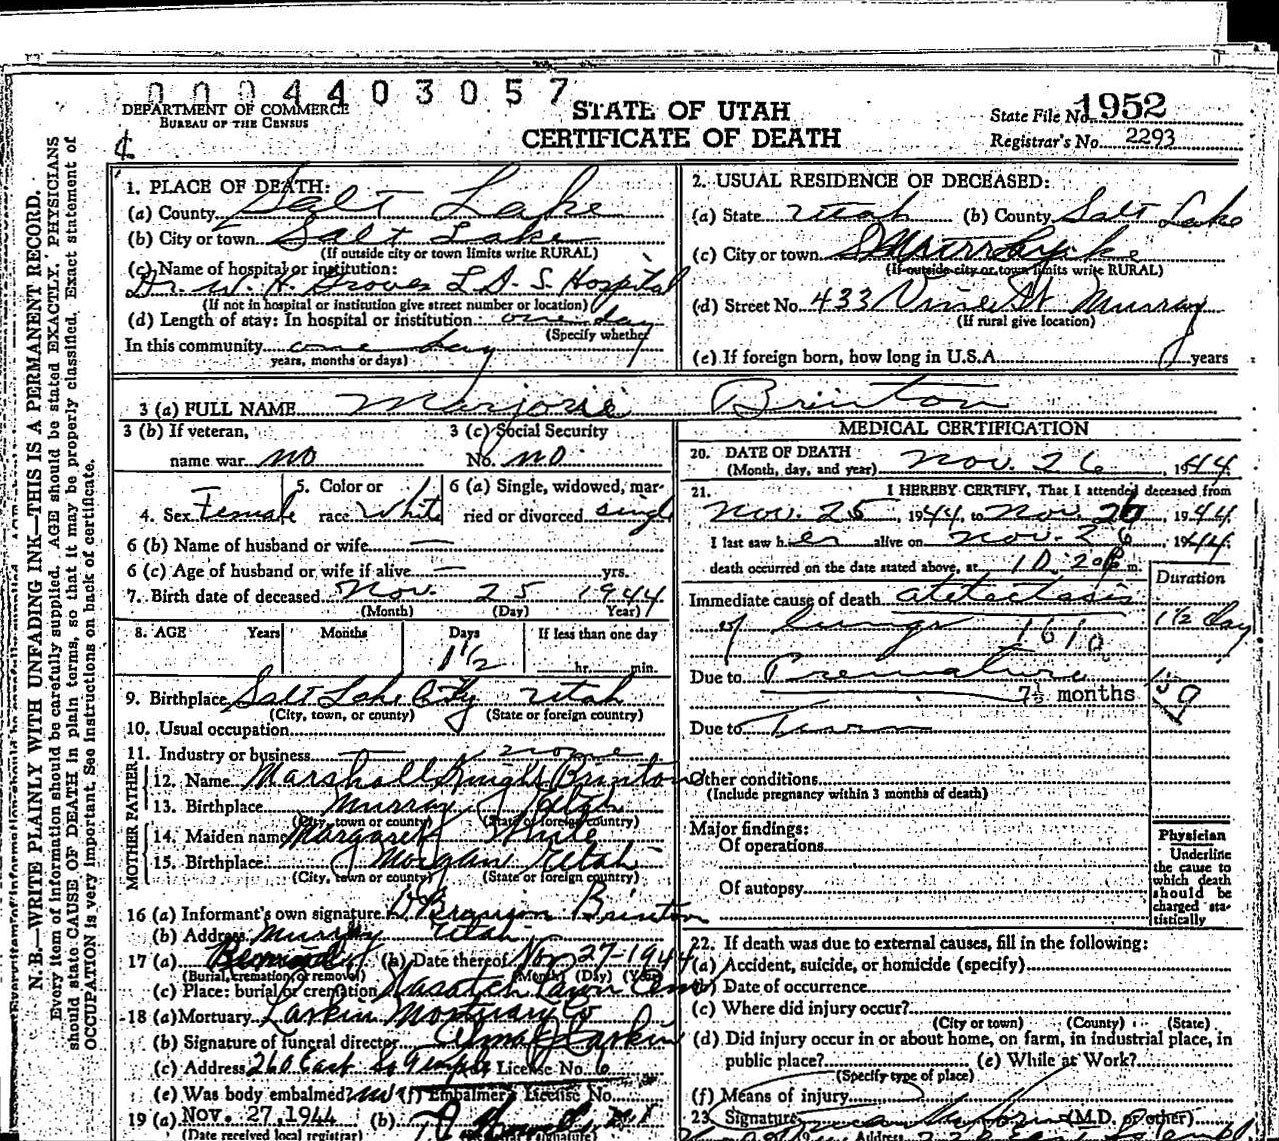 0004403057
DEPARTMENT OF COMMERCE
BUREAU OF THE CENSUS
STATE OF UTAH
CERTIFICATE OF DEATH
State File No. 1952
Registrar's No. 2293
N. B.—WRITE PLAINLY WITH UNFADING INK—THIS IS A PERMANENT RECORD.
Every item of information should be carefully supplied. AGE should be stated EXACTLY. PHYSICIANS
should state CAUSE OF DEATH in plain terms, so that it may be properly classified. Exact statement of
OCCUPATION is very important. See instructions on back of certificate.
1. PLACE OF DEATH:
(a) County Salt Lake
(b) City or town Salt Lake
(If outside city or town limits write RURAL)
(c) Name of hospital or institution:
Dr. W. H. Groves L.D.S. Hospital
(If not in hospital or institution give street number or location)
(d) Length of stay: In hospital or institution one day
(Specify whether
In this community one day
years, months or days)
2. USUAL RESIDENCE OF DECEASED:
(a) State Utah (b) County Salt Lake
(c) City or town Murray
(If outside city or town limits write RURAL)
(d) Street No. 433 Vine St Murray
(If rural give location)
(e) If foreign born, how long in U.S.A. years
3 (a) FULL NAME Marjorie Brinton
3 (b) If veteran,
name war no
3 (c) Social Security
No. no
4. Sex Female
5. Color or
race White
6 (a) Single, widowed, mar-
ried or divorced single
6 (b) Name of husband or wife —
6 (c) Age of husband or wife if alive — yrs.
7. Birth date of deceased Nov. 25 1944
(Month) (Day) Year)
8. AGE Years Months Days If less than one day
1½ hr. min.
9. Birthplace Salt Lake City Utah
(City, town, or county) (State or foreign country)
10. Usual occupation
11. Industry or business — none
FATHER
12. Name Marshall Knight Brinton
13. Birthplace Murray Utah
(City, town or county) (State or foreign country)
MOTHER
14. Maiden name Margaret White
15. Birthplace Morgan Utah
(City, town or county) (State or foreign country)
16 (a) Informant's own signature Brinton
(b) Address Murray Utah
17 (a) (b) Date thereof Nov 27-1944
(Burial, cremation or removal) (Month) (Day) (Year)
(c) Place: burial or cremation Wasatch Lawn Cem
18 (a) Mortuary Larkin Mortuary Co
(b) Signature of funeral director Larkin
(c) Address 260 East So Temple License No. 6
(e) Was body embalmed? no (f) Embalmer's License No.
19 (a) NOV. 27, 1944 (b)
(Date received local registrar)
MEDICAL CERTIFICATION
20. DATE OF DEATH
(Month, day, and year) Nov. 26, 1944
21. I HEREBY CERTIFY, That I attended deceased from
Nov. 25, 1944, to Nov. 26, 1944
I last saw her alive on Nov. 26 1944
death occurred on the date stated above, at 10:20 P m.
Duration
Immediate cause of death atelectasis
of lungs 1½ day
1610
Due to Premature
7½ months
159
Due to Twin
Other conditions
(Include pregnancy within 3 months of death)
Major findings:
Of operations
Of autopsy
Physician
Underline
the cause to
which death
should be
charged sta-
tistically
22. If death was due to external causes, fill in the following:
(a) Accident, suicide, or homicide (specify)
(b) Date of occurrence
(c) Where did injury occur?
(City or town) (County) (State)
(d) Did injury occur in or about home, on farm, in industrial place, in
public place? (e) While at Work?
(Specify type of place)
(f) Means of injury
23. Signature (M.D. or other)
Address